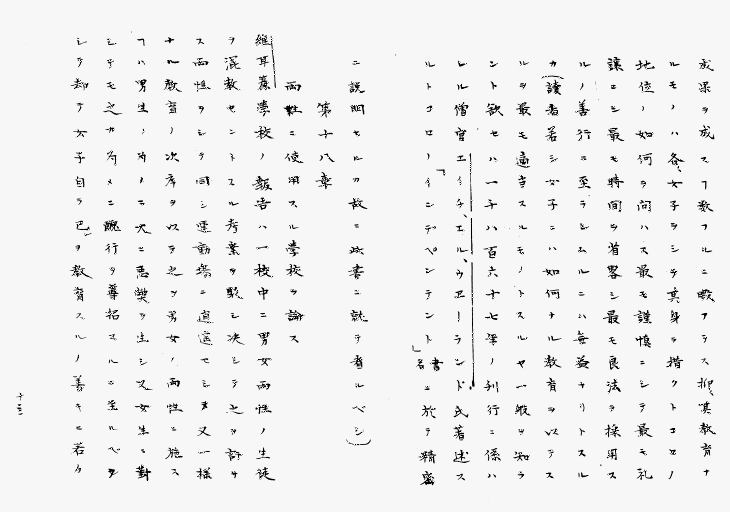 成果ヲ成ス丁数フルニ暇アラス抑其教育ナ
ルモノハ各女子ヲシテ其身ヲ措クトコロノ
地位ノ如何ヲ問ハス最モ謹慎ニシテ最モ礼
譲ニシ最モ時間ヲ省畧シ最モ良法ヲ採用ス
ルノ善行ニ至ラシムルニハ無益ナリトスル
カ(讀者若シ女子ニハ如何ナル教育ヲ以テス
ルヲ最モ適当スルモノトスルヤ一般ヲ知ラ
ント欲セハ一千八百六十七年ノ刋行ニ係ハ
レル僧官エイチ、エル、ウエーランド氏著述ス
ルトコロノ「インデペンデント」書名ニ於テ精密
ニ説明セルカ故ニ此書ニ就テ看ルベシ)
第十八章
両性ニ使用スル學校ヲ論ス
維耳蘇學校ノ報告ハ一校中ニ男女両性ノ生徒
ヲ混教セントスル考案ヲ駁シ決シテ之ヲ許サ
ス両性ヲシテ同シ運動場ニ直這セシメ又一様
ナル教育ノ次序ヲ以テ之ヲ男女ノ両性ニ施ス
丁ハ男生ノ為ノニ大ニ悪獘ヲ生シ又女生ニ對
シテモ之カ為メニ醜行ヲ尊招スルニ至ルベク
シテ却テ女子自ラ己ヲ教育スルノ善キニ若カ
十三